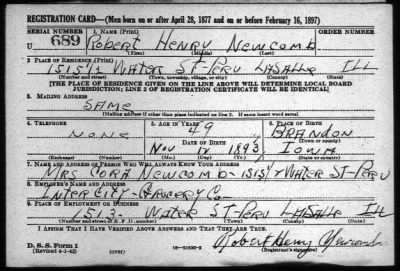 REGISTRATION CARD—(Men born on or after April 28, 1877 and on or before February 16, 1897)
SERIAL NUMBER 1. NAME (Print) ORDER NUMBER
U 689 Robert Henry Newcomb
(First) (Middle) (Last)
2. PLACE OF RESIDENCE (Print)
1515½ Water St-Peru LaSalle Ill
(Number and street) (Town, township, village, or city) (County) (State)
[THE PLACE OF RESIDENCE GIVEN ON THE LINE ABOVE WILL DETERMINE LOCAL BOARD
JURISDICTION; LINE 2 OF REGISTRATION CERTIFICATE WILL BE IDENTICAL]
3. MAILING ADDRESS
Same
[Mailing address if other than place indicated on line 2. If same insert word same]
4. TELEPHONE 5. AGE IN YEARS 6. PLACE OF BIRTH
None 49 Brandon
DATE OF BIRTH (Town or county)
Nov 1893 Iowa
(Exchange) (Number) (Mo.) (Day) (Yr.) (State or country)
7. NAME AND ADDRESS OF PERSON WHO WILL ALWAYS KNOW YOUR ADDRESS
Mrs Cora Newcomb-1515½ Water St-Peru
8. EMPLOYER'S NAME AND ADDRESS
Inter City-Grocery Co
9. PLACE OF EMPLOYMENT OR BUSINESS
1513- Water St-Peru LaSalle Ill
(Number and street or R. F. D. number) (Town) (County) (State)
I AFFIRM THAT I HAVE VERIFIED ABOVE ANSWERS AND THAT THEY ARE TRUE.
Robert Henry Newcomb
D. S. S. Form 1
(Revised 4-1-42) (over) (Registrant's signature)